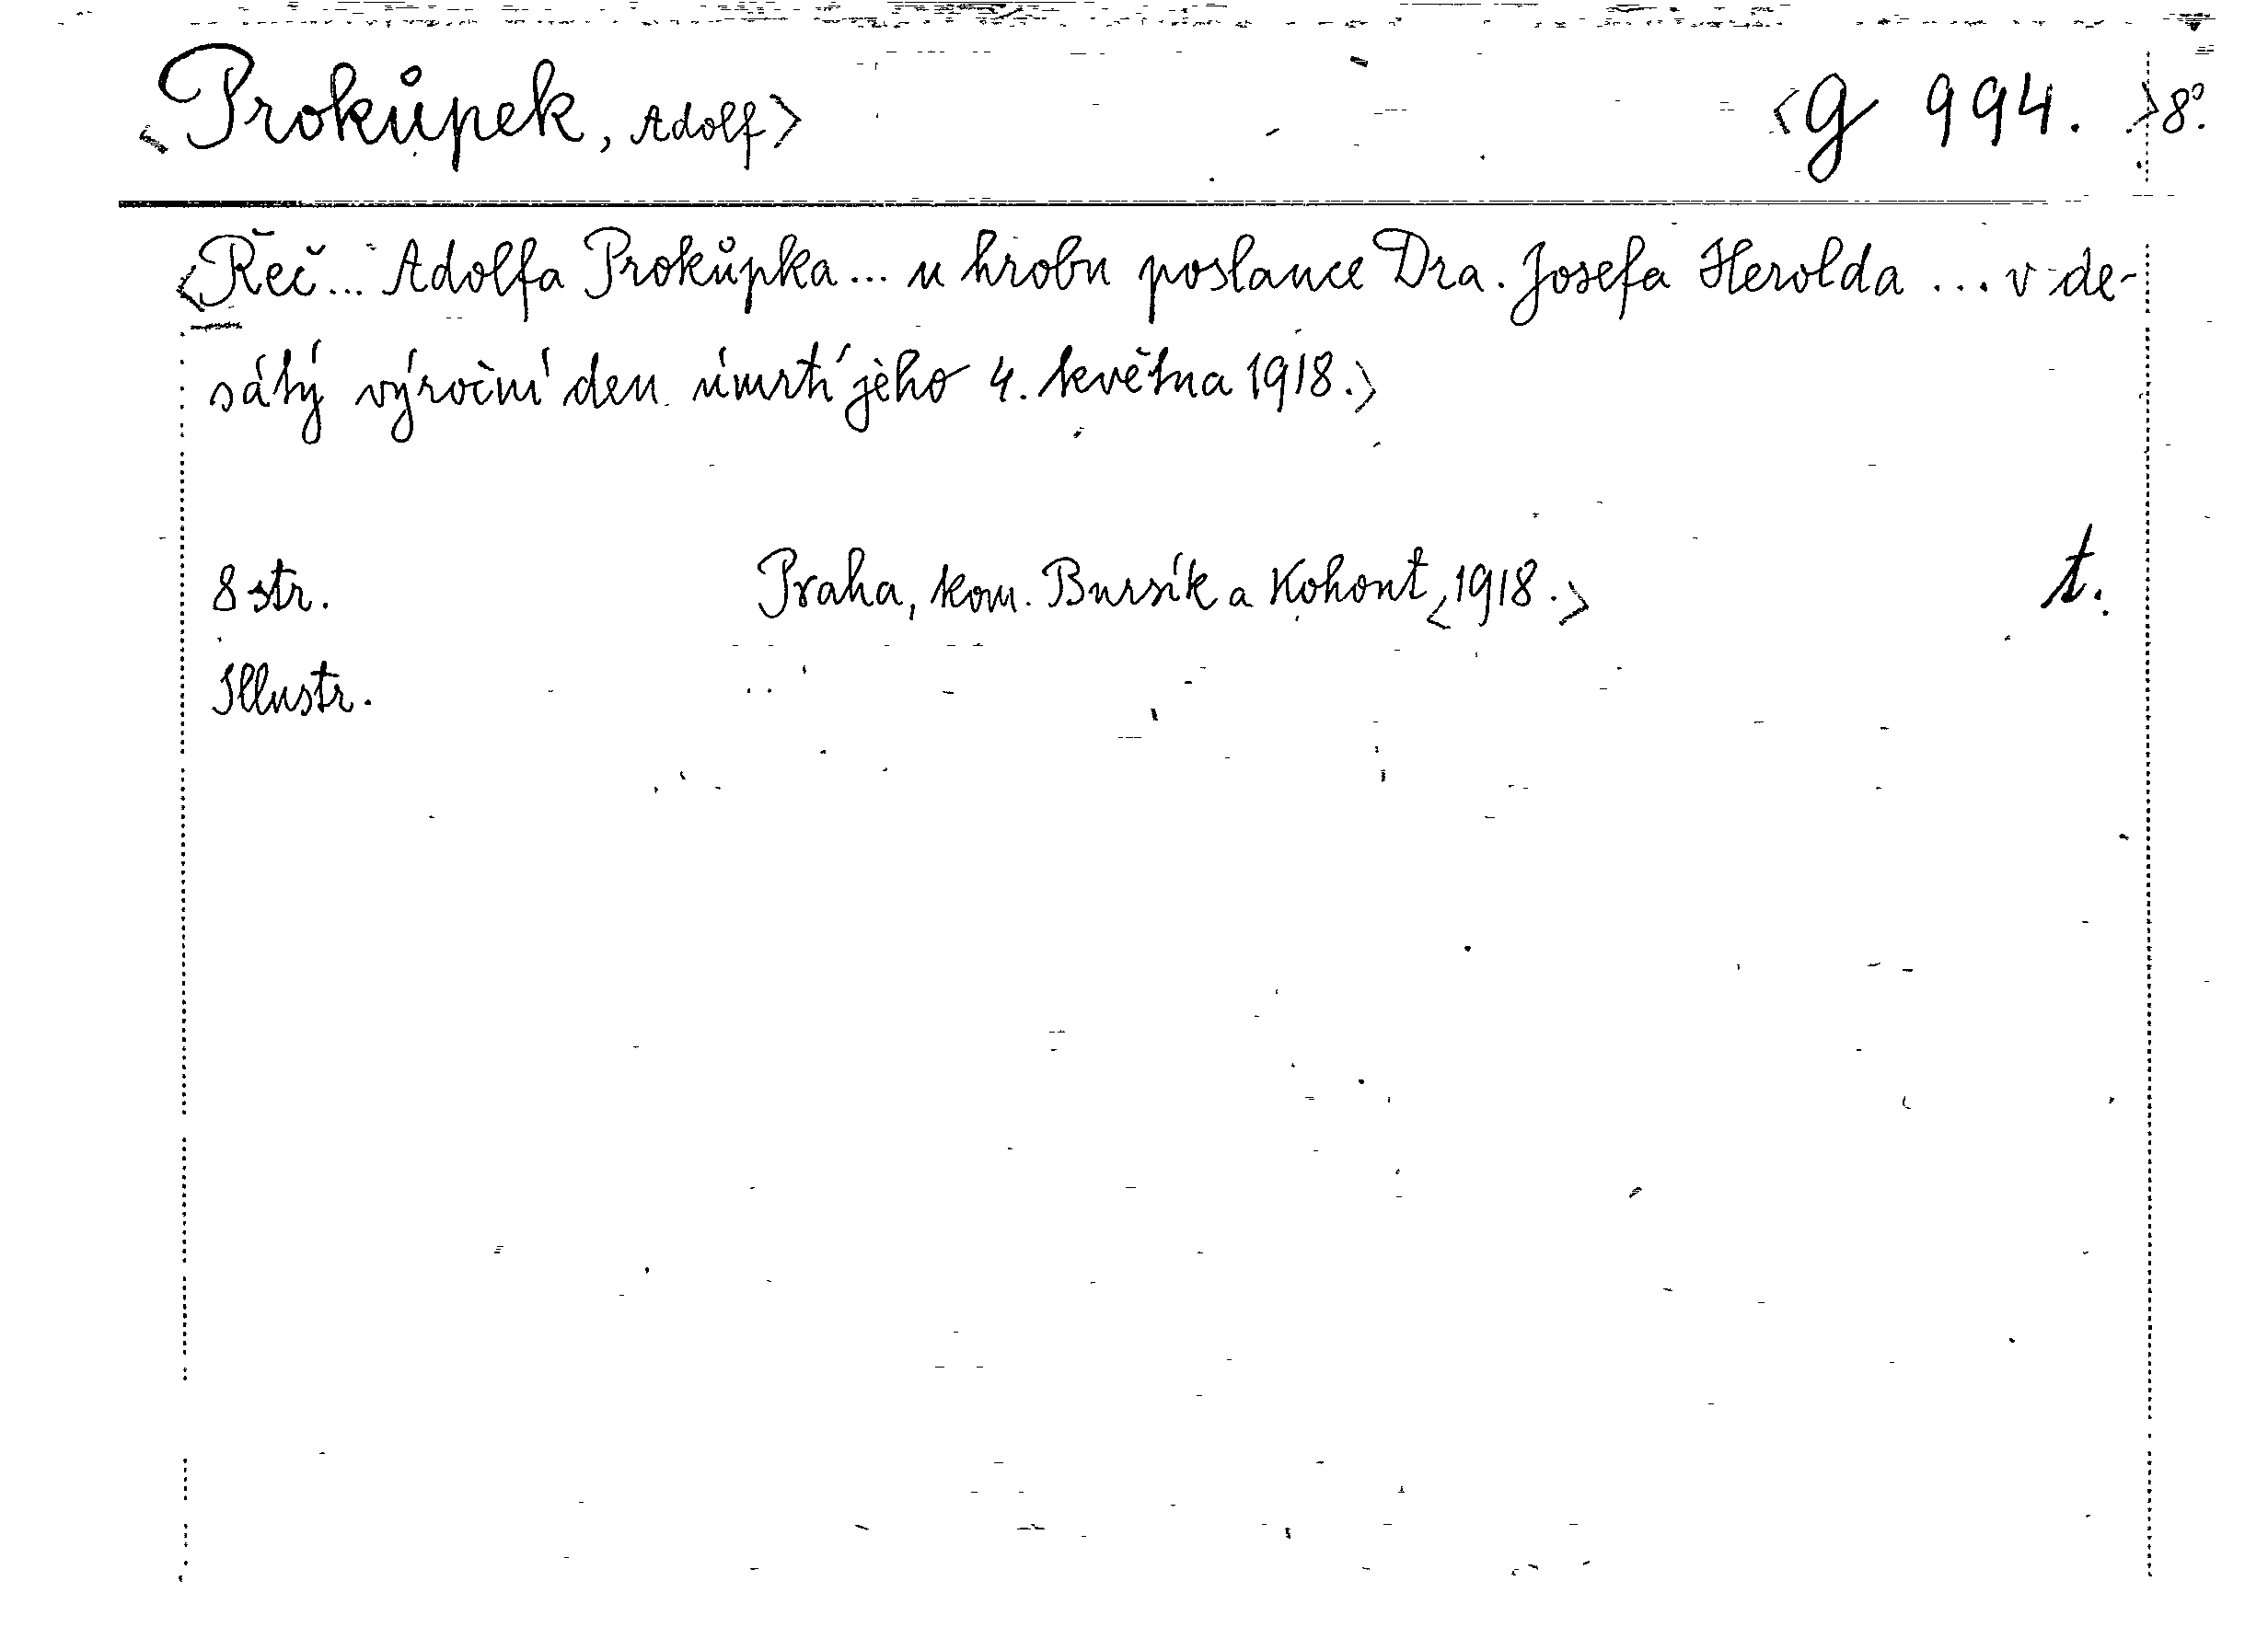 <Prokůpek, Adolf> <g 994. >8°.
<Řeč... Adolfa Prokůpka... u hrobu poslance Dra. Josefa Herolda ... v de-
sátý výroční den úmrtí jeho 4. května 1918.>
8 str. Praha, kom. Bursík a Kohout <1918.> t.
Illustr.